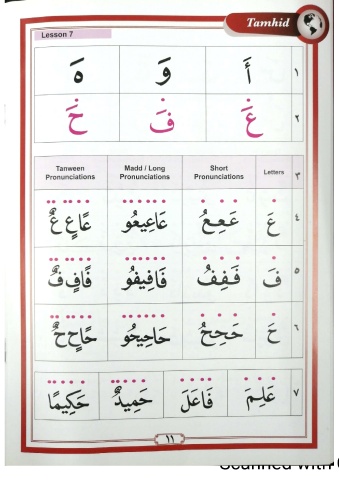 Tamhid
Lesson 7
١ أَ وَ هَ
٢ عَ فَ حَ
٣ Letters Short Pronunciations Madd / Long Pronunciations Tanween Pronunciations
٤ عَ عَعِعُ عَاعِيعُو عًاعٍعٌ
٥ فَ فَفِفُ فَافِيفُو فًافٍفٌ
٦ حَ حَحِحُ حَاحِيحُو حًاحٍحٌ
٧ عَلِمَ فَاعَلَ حَمِيدٌ حَكِيمًا
١١
Scanned with